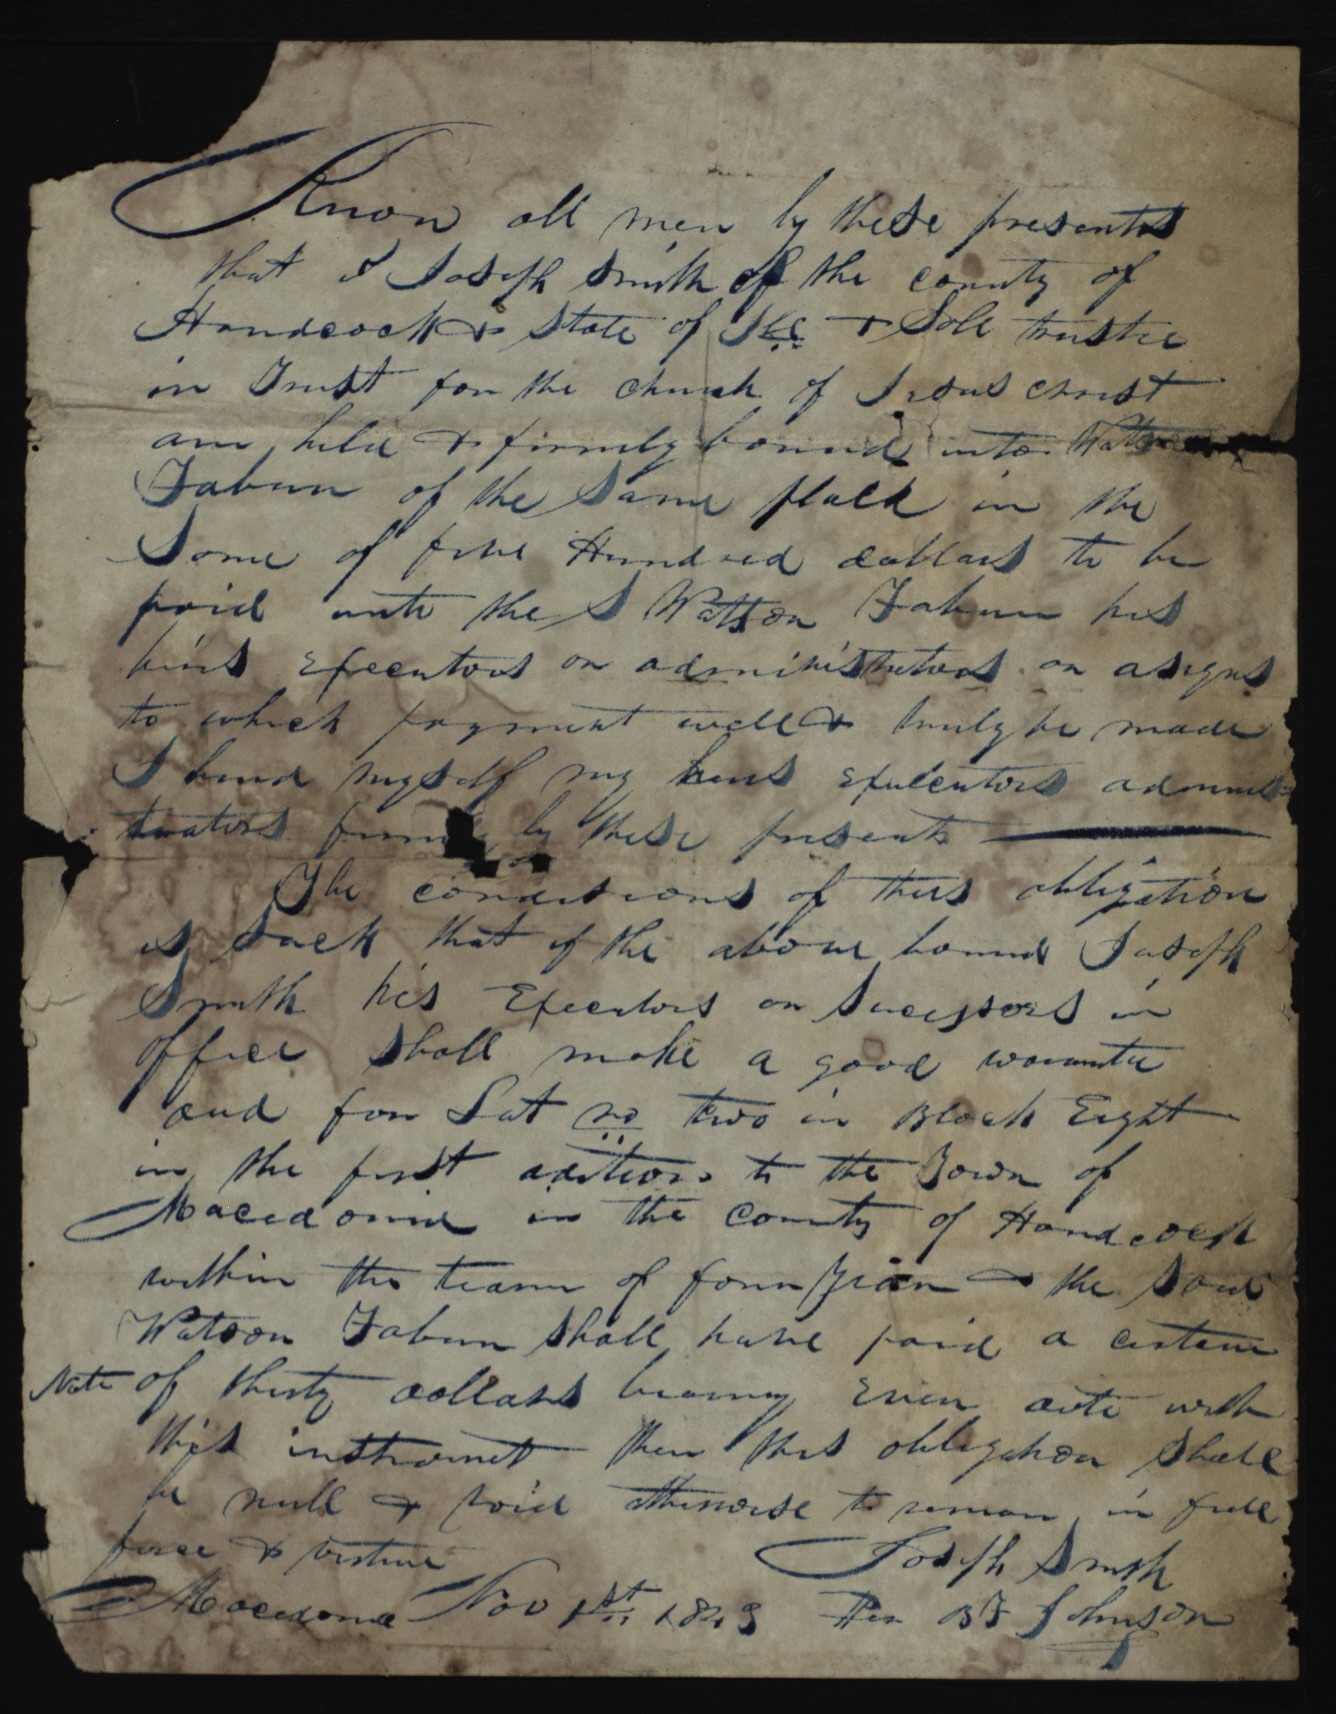 Know all men by these presents
that I Joseph Smith of the county of
Handcock & State of Ill & Sole trustee
in Trust for the church of Jesus christ
am held & firmly bound unto
Tabun of the Same place in the
Some of five Hundred dollars to be
paid unto the S Wattson Tabun his
heirs Executors or administrators or asigns
to which payment well & truly be made
I bind myself my heirs Executors adminis=
trators firmly by these presents
The conditions of this obligation
is such that if the above bound Joseph
Smith his Executors or Sucessors in
office shall make a good warantee
dud for Lot no two in Block Eight
in the first adition to the Town of
Macedonia in the County of Handcock
within the tearm of four years & the Said
Watson Tabun shall have paid a certain
Note of thirty dollars bearing even date with
this instrument then this obligation shall
be null & void otherwise to remain in full
force & virtue
Joseph Smith
Macedonia Nov 1st 1843 Per B F Johnson